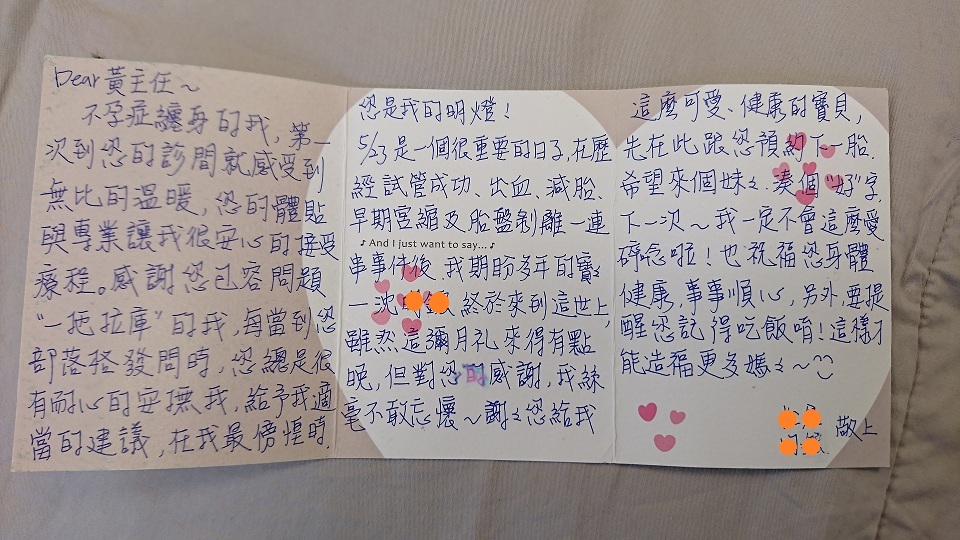 Dear 黃主任~
不孕症纏身的我,第一
次到您的診間就感受到
無比的溫暖,您的體貼
與專業讓我很安心的接受
療程。感謝您包容問題
"一拖拉庫"的我,每當到您
部落格發問時,您總是很
有耐心的安撫我,給予我適
當的建議,在我最徬徨時.
您是我的明燈!
5/23是一個很重要的日子,在歷
經試管成功、出血、減胎、
早期宮縮及胎盤剝離一連
♪ And I just want to say... ♪
串事件後,我期盼多年的寶々
一沈 終於來到這世上,
雖然這彌月礼來得有點
晚,但對您的感謝,我絲
毫不敢忘懷~謝々您給我
這麼可愛、健康的寶貝,
先在此跟您預約下一胎.
希望來個妹々.湊個"好"字
下一次~我一定不會這麼愛
碎念啦!也祝福您身體
健康,事事順心,另外,要提
醒您記得吃飯唷!這樣才
能造福更多媽々~
敬上